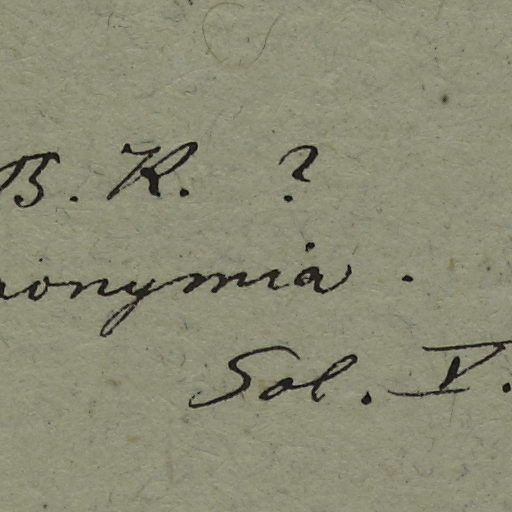 B. K. ?
onymia .
Sol. V.